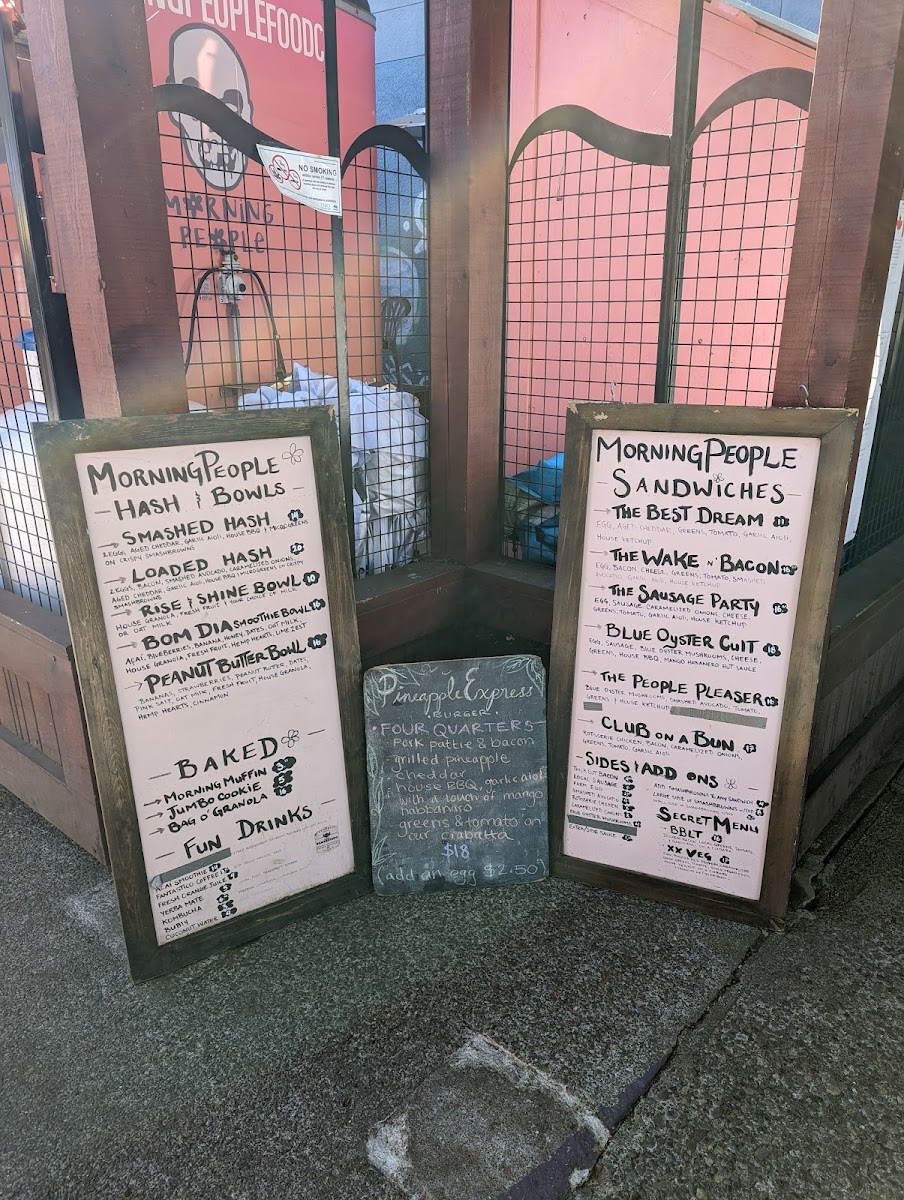 NGPEOPLEFOODC
NO SMOKING
M*RNING
PE*PLe
MORNINGPEOPLE
- HASH & BOWLS -
→ SMASHED HASH
2 EGGS, AGED CHEDDAR, GARLIC AIOLI, HOUSE BBQ & MICRO-GREENS
ON CRISPY SMASHBROWNS
→ LOADED HASH
2 EGGS, BACON, SMASHED AVOCADO, CARAMELIZED ONIONS,
AGED CHEDDAR, GARLIC AIOLI, HOUSE BBQ & MICROGREENS ON CRISPY
SMASHBROWNS
→ RISE & SHINE BOWL 10
HOUSE GRANOLA, FRESH FRUIT & YOUR CHOICE OF MILK
OR OAT MILK
→ BOM DIA SMOOTHIE BOWL 16
AÇAÍ, BLUEBERRIES, BANANA, HONEY, DATES, OAT MILK,
HOUSE GRANOLA, FRESH FRUIT, HEMP HEARTS, LIME ZEST
→ PEANUT BUTTER BOWL 16
BANANAS, STRAWBERRIES, PEANUT BUTTER, DATES,
PINK SALT, OAT MILK, FRESH FRUIT, HOUSE GRANOLA,
HEMP HEARTS, CINNAMON
- BAKED -
→ MORNING MUFFIN
→ JUMBO COOKIE
→ BAG O' GRANOLA
- FUN DRINKS
AÇAÍ SMOOTHIE
FANTASTICO COFFEE
FRESH ORANGE JUICE
YERBA MATE
KOMBUCHA
BUBLY
COCONUT WATER
Pineapple Express
• BURGER •
• FOUR QUARTERS -
Pork pattie & bacon
- grilled pineapple
- cheddar
- house BBQ, garlic aioli
with a touch of mango
habanero
- greens & tomato on
our crabatta
$18
(add an egg $2.50)
MORNINGPEOPLE
- SANDWICHES -
→ THE BEST DREAM
EGG, AGED CHEDDAR, GREENS, TOMATO, GARLIC AIOLI,
HOUSE KETCHUP
→ THE WAKE N' BACON
EGG, BACON, CHEESE, GREENS, TOMATO, SMASHED
AVOCADO, GARLIC AIOLI, HOUSE KETCHUP
→ THE SAUSAGE PARTY
EGG, SAUSAGE, CARAMELIZED ONIONS, CHEESE,
GREENS, TOMATO, GARLIC AIOLI, HOUSE KETCHUP
→ BLUE OYSTER CULT
EGG, SAUSAGE, BLUE OYSTER MUSHROOMS, CHEESE,
GREENS, HOUSE BBQ, MANGO HABANERO HOT SAUCE
→ THE PEOPLE PLEASER
BLUE OYSTER MUSHROOMS, SMASHED AVOCADO, TOMATO,
GREENS & HOUSE KETCHUP
→ CLUB ON A BUN
ROTISSERIE CHICKEN, BACON, CARAMELIZED ONIONS,
GREENS, TOMATO, GARLIC AIOLI
- SIDES & ADD ONS -
THICK CUT BACON
LOCAL SAUSAGE
FARM EGG
SMASHED AVOCADO
ROTISSERIE CHICKEN
CARAMELIZED ONIONS
BLUE OYSTER MUSHROOMS
EXTRA/SIDE SAUCE
ADD SMASHBROWNS TO ANY SANDWICH
LARGE SIDE OF SMASHBROWNS
SECRET MENU
- BBLT
- XX VEG